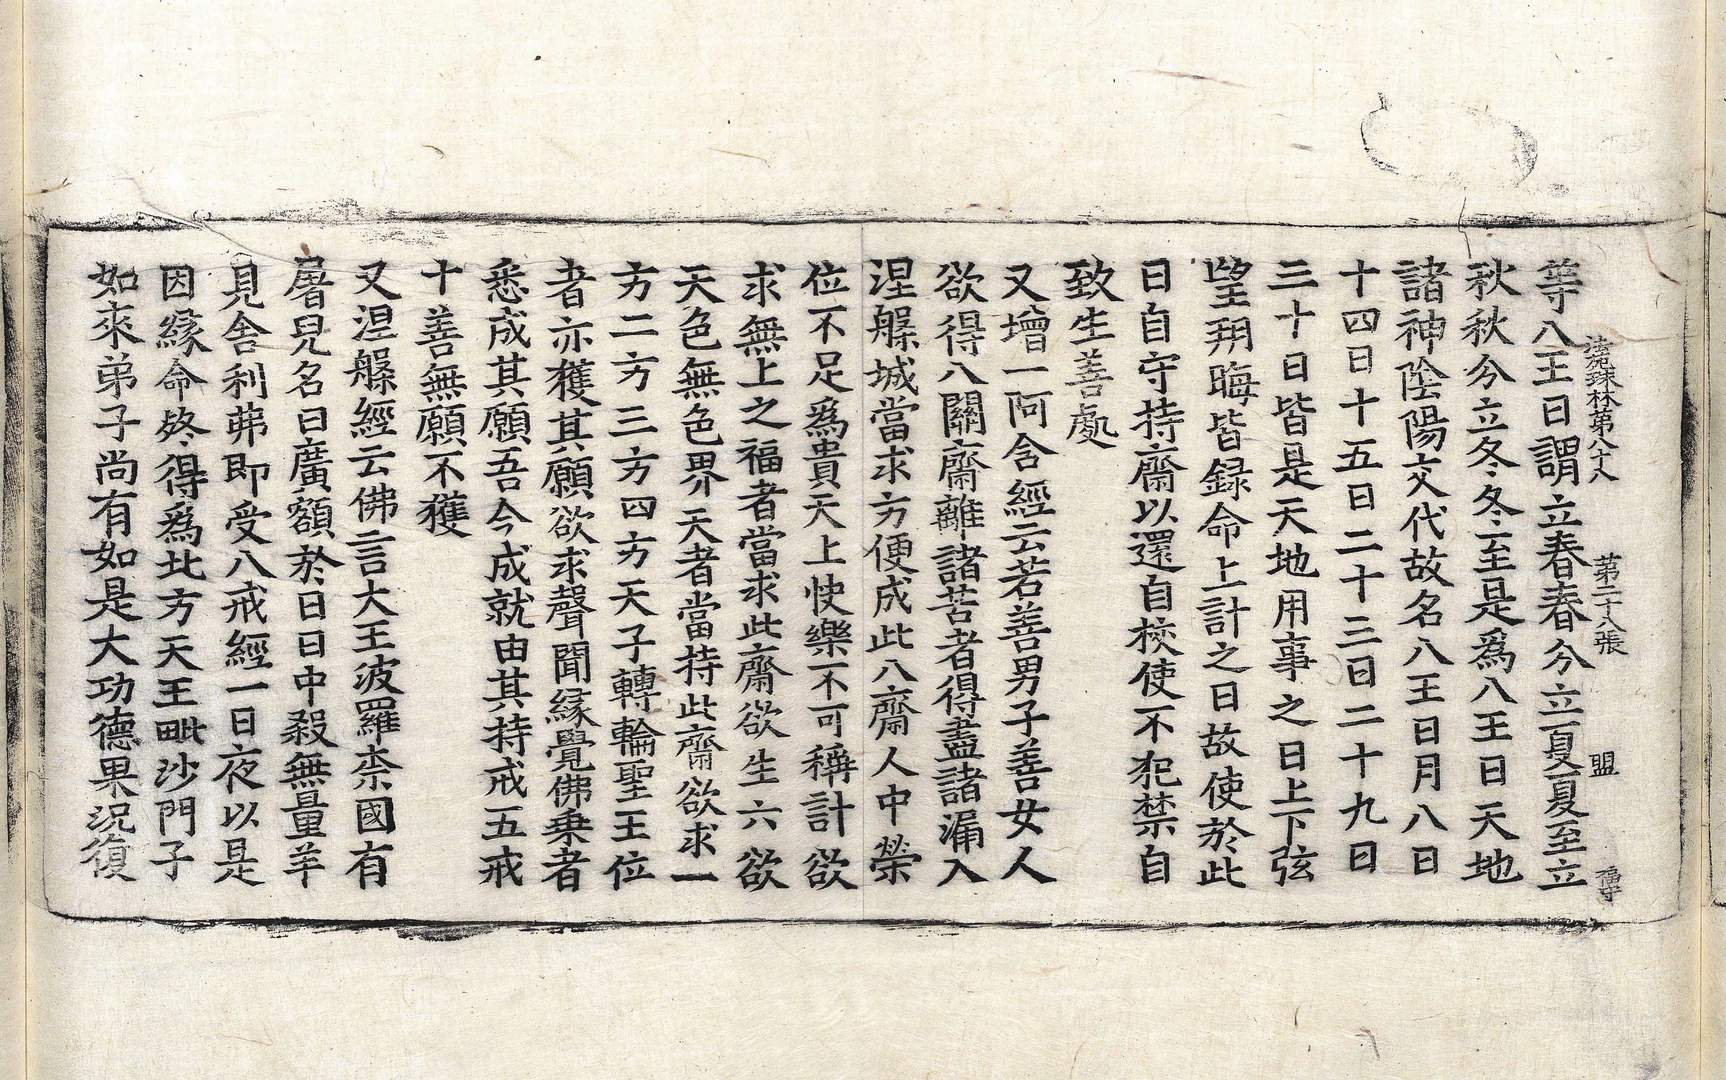 法苑珠林第八十八 第二十八張 盟 福守
等八王日謂立春春分立夏夏至立
秋秋分立冬冬至是爲八王日天地
諸神陰陽交代故名八王日月八日
十四日十五日二十三日二十九日
三十日皆是天地用事之日上下弦
望朔晦皆録命上計之日故使於此
日自守持齋以還自校使不犯禁自
致生善處
又增一阿含經云若善男子善女人
欲得八關齋離諸苦者得盡諸漏入
涅槃城當求方便成此八齋人中榮
位不足爲貴天上快樂不可稱計欲
求無上之福者當求此齋欲生六欲
天色無色界天者當持此齋欲求一
方二方三方四方天子轉輪聖王位
者亦獲其願欲求聲聞緣覺佛乗者
悉成其願吾今成就由其持戒五戒
十善無願不獲
又涅槃經云佛言大王波羅柰國有
屠兒名曰廣額於日日中殺無量羊
見舍利弗即受八戒經一日夜以是
因緣命終得爲北方天王毗沙門子
如來弟子尚有如是大功德果況復